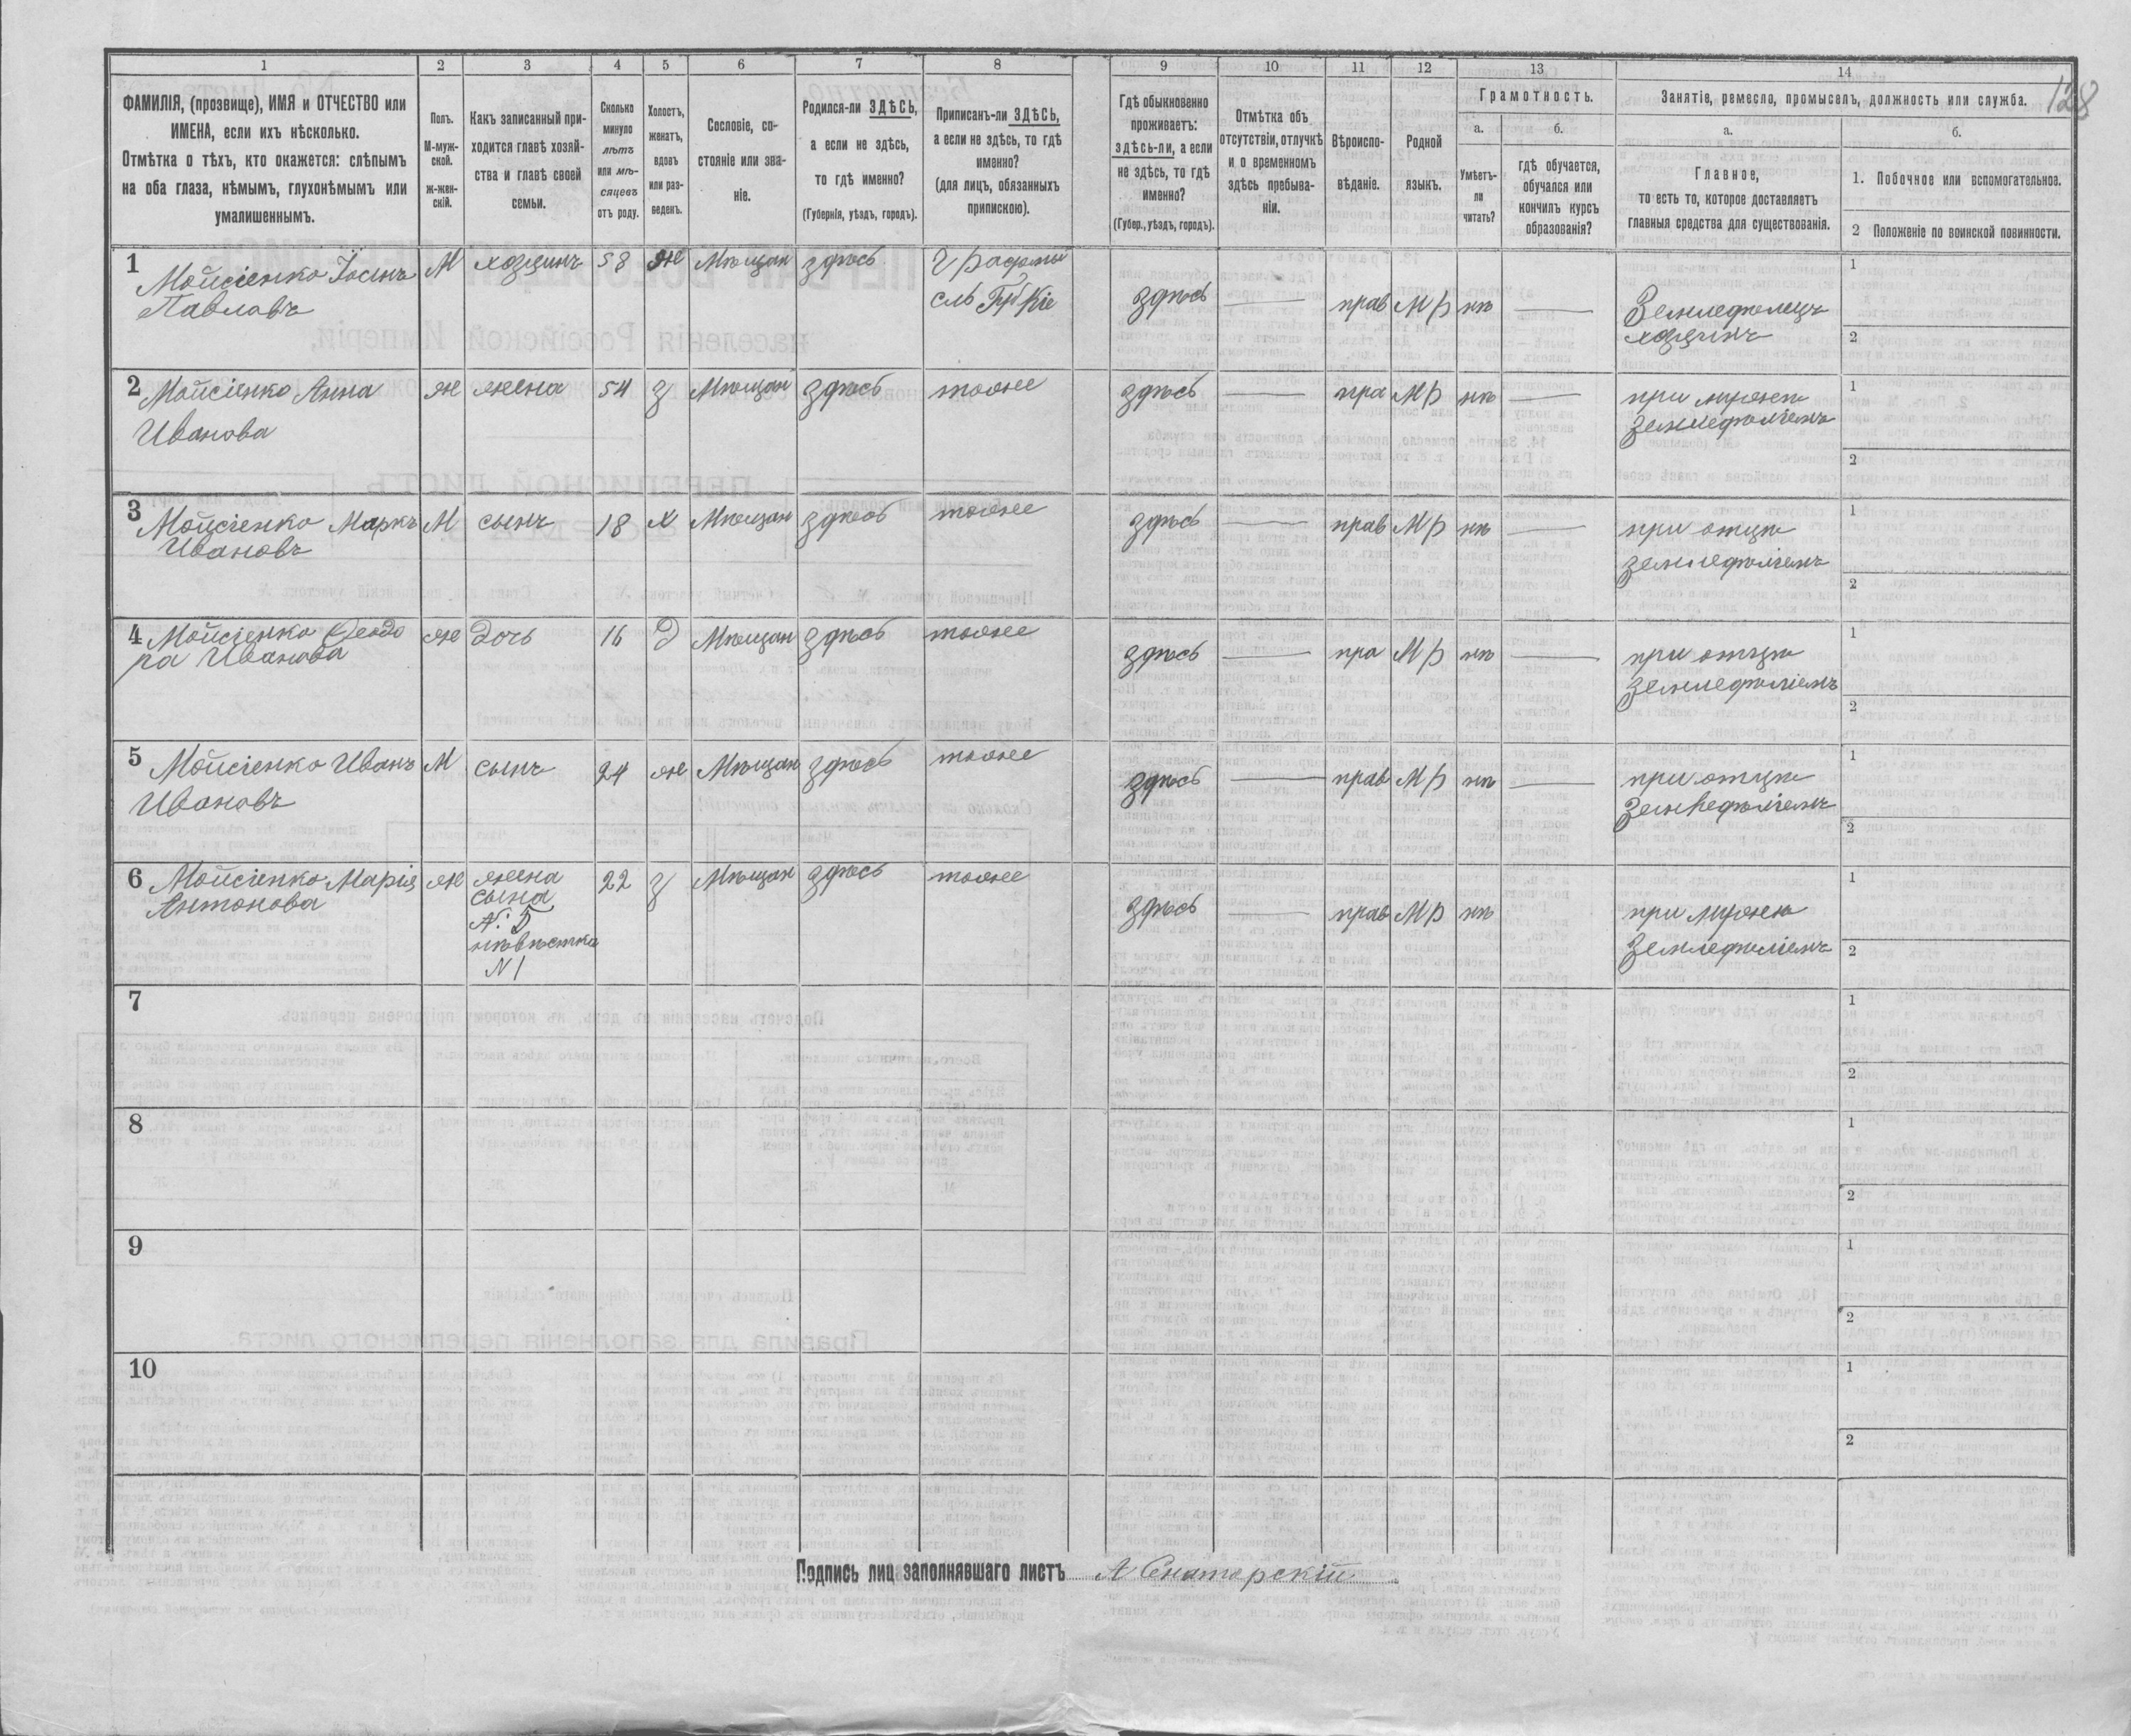 128
1 2 3 4 5 6 7 8 9 10 11 12 13 14
ФАМИЛІЯ, (прозвище), ИМЯ и ОТЧЕСТВО или
ИМЕНА, если ихъ нѣсколько.
Отмѣтка о тѣхъ, кто окажется: слѣпымъ
на оба глаза, нѣмымъ, глухонѣмымъ или
умалишеннымъ.
Полъ.
М-муж-
ской.
ж-жен-
скій.
Какъ записанный при-
ходится главѣ хозяй-
ства и главѣ своей
семьи.
Сколько
минуло
лѣтъ
или мѣ-
сяцевъ
отъ роду.
Холостъ,
женатъ,
вдовъ
или раз-
веденъ.
Сословіе, со-
стояніе или зва-
ніе.
Родился-ли ЗДѢСЬ,
а если не здѣсь,
то гдѣ именно?
(Губернія, уѣздъ, городъ).
Приписанъ-ли ЗДѢСЬ,
а если не здѣсь, то гдѣ
именно?
(для лицъ, обязанныхъ
припискою).
Гдѣ обыкновенно
проживаетъ:
здѣсь-ли, а если
не здѣсь, то гдѣ
именно?
(Губер., уѣздъ, городъ).
Отмѣтка объ
отсутствіи, отлучкѣ
и о временномъ
здѣсь пребыва-
ніи.
Вѣроиспо-
вѣданіе.
Родной
языкъ.
Грамотность.
а.
Умѣетъ-
ли
читать?
б.
гдѣ обучается,
обучался или
кончилъ курсъ
образованія?
Занятіе, ремесло, промыселъ, должность или служба.
а.
Главное,
то есть то, которое доставляетъ
главныя средства для существованія.
б.
1. Побочное или вспомогательное.
2 Положеніе по воинской повинности.
1 Мойсіенко Іосинъ М хозяинъ 58 ж Мѣщан здѣсь здѣсь — прав МР нѣ — Земледѣлецъ 1
Павловъ хозяинъ 2
2 Мойсіенко Анна ж жена 54 з Мѣщан здѣсь тоже здѣсь — пра МР нѣ — при мужѣ 1
Иванова земледѣліемъ 2
3 Мойсіенко Маркъ М сынъ 18 х Мѣщан здѣсь тоже здѣсь — прав МР нѣ — при отцѣ 1
Ивановъ земледѣліемъ 2
4 Мойсіенко Ѳеодо ж дочь 16 д Мѣщан здѣсь тоже здѣсь — пра МР нѣ — при отцѣ 1
ра Иванова земледѣліемъ 2
5 Мойсіенко Иванъ М сынъ 24 ж Мѣщан здѣсь тоже здѣсь — прав МР нѣ — при отцѣ 1
Ивановъ земледѣліемъ 2
6 Мойсіенко Марія ж жена 22 з Мѣщан здѣсь тоже здѣсь — прав МР нѣ при мужѣ 1
Антонова сына земледѣліемъ 2
№: 5
невѣстка
N 1
7 1
2
8 1
2
9 1
2
10 1
2
Подпись лиц заполнявшаго листъ А Сенаторскій